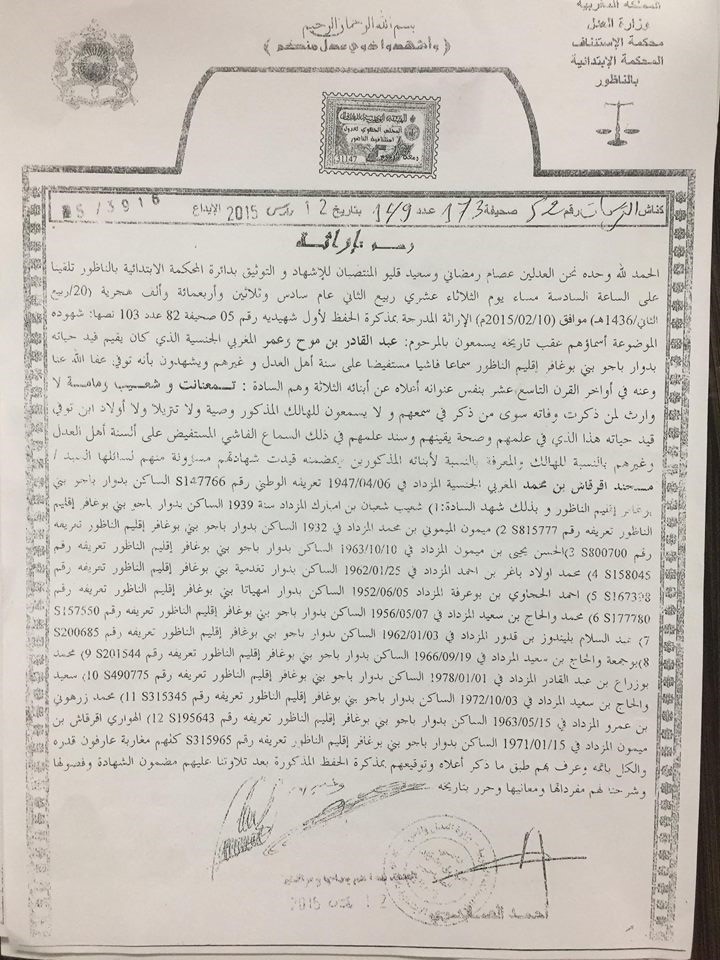 المملكة المغربية
وزارة العدل
محكمة الإستئناف
المحكمة الإبتدائية
بالناظور
بسم الله الرحمان الرحيم
﴿ وأشهدوا ذوي عدل منكم ﴾
31147
كناش التركات رقم 52 صحيفة 173 عدد 149 بتاريخ 12 مارس 2015 الإيداع 3916/
رسم إراثة
الحمد لله وحده نحن العدلين عصام رمضاني وسعيد قليو المنتصبان للإشهاد و التوثيق بدائرة المحكمة الابتدائية بالناظور تلقينا
على الساعة السادسة مساء يوم الثلاثاء عشري ربيع الثاني عام سادس وثلاثين وأربعمائة وألف هجرية (20/ربيع
الثاني/1436هـ) موافق (2015/02/10م) الإراثة المدرجة بمذكرة الحفظ لأول شهيديه رقم 05 صحيفة 82 عدد 103 نصها: شهوده
الموضوعة أسماؤهم عقب تاريخه يسمعون بالمرحوم: عبد القادر بن موح وعمر المغربي الجنسية الذي كان يقيم قيد حياته
بدوار ياجو بني بوغافر إقليم الناظور سماعا فاشيا مستفيضا على ألسنة أهل العدل و غيرهم ويشهدون بأنه توفي عفا الله عنا
وعنه في أواخر القرن التاسع عشر بنفس عنوانه أعلاه عن أبنائه الثلاثة وهم السادة : تمعنانت و شعيب لا
وارث لمن ذكرت وفاته سوى من ذكر في سمعهم و لا يسمعون للهالك المذكور وصية ولا تنزيلا ولا أولاد ابن توفي
قيد حياته هذا الذي في علمهم وصحة يقينهم وسند علمهم في ذلك السماع الفاشي المستفيض على ألسنة أهل العدل
وغيرهم بالنسبة للهالك والمعرفة بالنسبة لأبنائه المذكورين بمضمنه قيدت شهادتهم مسؤولة منهم لسائلها السيد /
محند اقرقاش بن محمد المغربي الجنسية المزداد في 1947/04/06 تعريفه الوطني رقم S147766 الساكن بدوار ياجو بني
بوغافر إقليم الناظور و بذلك شهد السادة:1) شعيب شعبان بن امبارك المزداد سنة 1939 الساكن بدوار ياجو بني بوغافر إقليم
الناظور تعريفه رقم S815777 2) ميمون الميموني بن محمد المزداد في 1932 الساكن بدوار ياجو بني بوغافر إقليم الناظور تعريفه
رقم S800700 3)الحسن يحيى بن ميمون المزداد في 1963/10/10 الساكن بدوار ياجو بني بوغافر إقليم الناظور تعريفه رقم
S158045 4) محمد اولاد باغر بن احمد المزداد في 1962/01/25 الساكن بدوار تقدمية بني بوغافر إقليم الناظور تعريفه رقم
S167398 5) احمد الحجاوي بن بوعرفة المزداد 1952/06/05 الساكن بدوار امهياتا بني بوغافر إقليم الناظور تعريفه رقم
S177780 6) محمد والحاج بن سعيد المزداد في 1956/05/07 الساكن بدوار ياجو بني بوغافر إقليم الناظور تعريفه رقم S157550
7) عبد السلام بليندوز بن قدور المزداد في 1962/01/03 الساكن بدوار ياجو بني بوغافر إقليم الناظور تعريفه رقم S200685
8)بوجمعة والحاج بن سعيد المزداد في 1966/09/19 الساكن بدوار ياجو بني بوغافر إقليم الناظور تعريفه رقم S201544 9) محمد
بوزراع بن عبد القادر المزداد في 1978/01/01 الساكن بدوار ياجو بني بوغافر إقليم الناظور تعريفه رقم S490775 10) سعيد
والحاج بن سعيد المزداد في 1972/10/03 الساكن بدوار ياجو بني بوغافر إقليم الناظور تعريفه رقم S315345 11) محمد زرهوني
بن عمرو المزداد في 1963/05/15 الساكن بدوار ياجو بني بوغافر إقليم الناظور تعريفه رقم S195643 12) الهواري اقرقاش بن
ميمون المزداد في 1971/01/15 الساكن بدوار ياجو بني بوغافر إقليم الناظور تعريفه رقم S315965 كلهم مغاربة عارفون قدره
والكل بأتمه وعرف بهم طبق ما ذكر أعلاه وتوقيعهم بمذكرة الحفظ المذكورة بعد تلاوتنا عليهم مضمون الشهادة وفصولها
وشرحنا لهم مفرداتها ومعانيها وحرر بتاريخه
12 مارس 2015